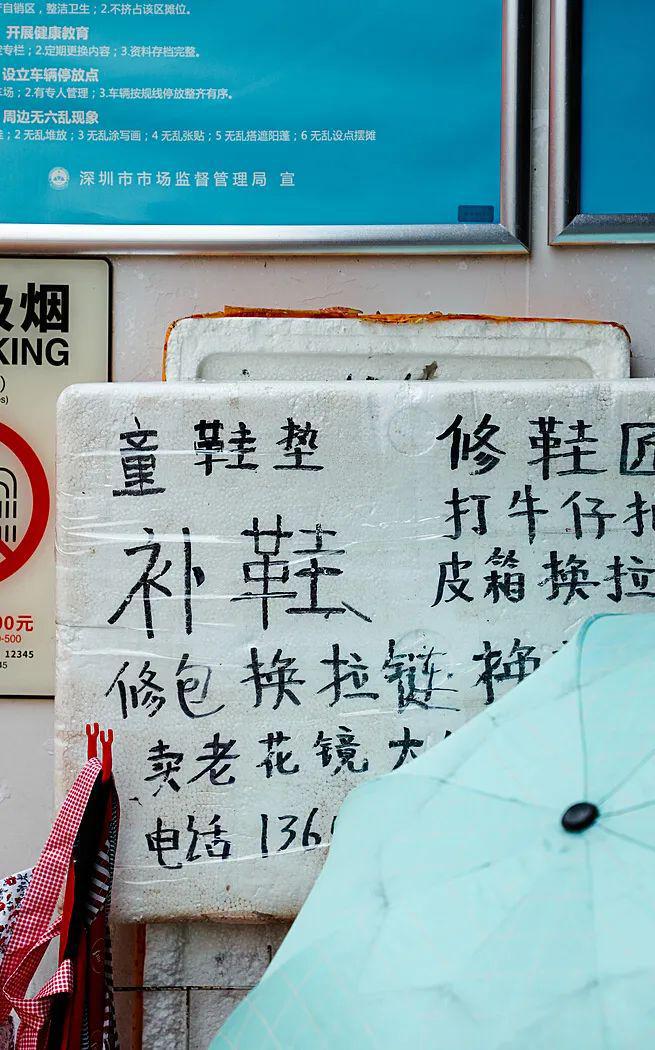 自销区，整洁卫生；2.不挤占该区摊位。
开展健康教育
专栏；2.定期更换内容；3.资料存档完整。
设立车辆停放点
车场；2.有专人管理；3.车辆按规线停放整齐有序。
周边无六乱现象
2 无乱堆放；3 无乱涂写画；4 无乱张贴；5 无乱搭遮阳蓬；6 无乱设点摆摊
深圳市市场监督管理局 宣
吸烟
KING
00元
-500
12345
45
童鞋垫
补鞋
修包换拉链
卖老花镜
电话 136
修鞋匠
打牛仔扣
皮箱换拉